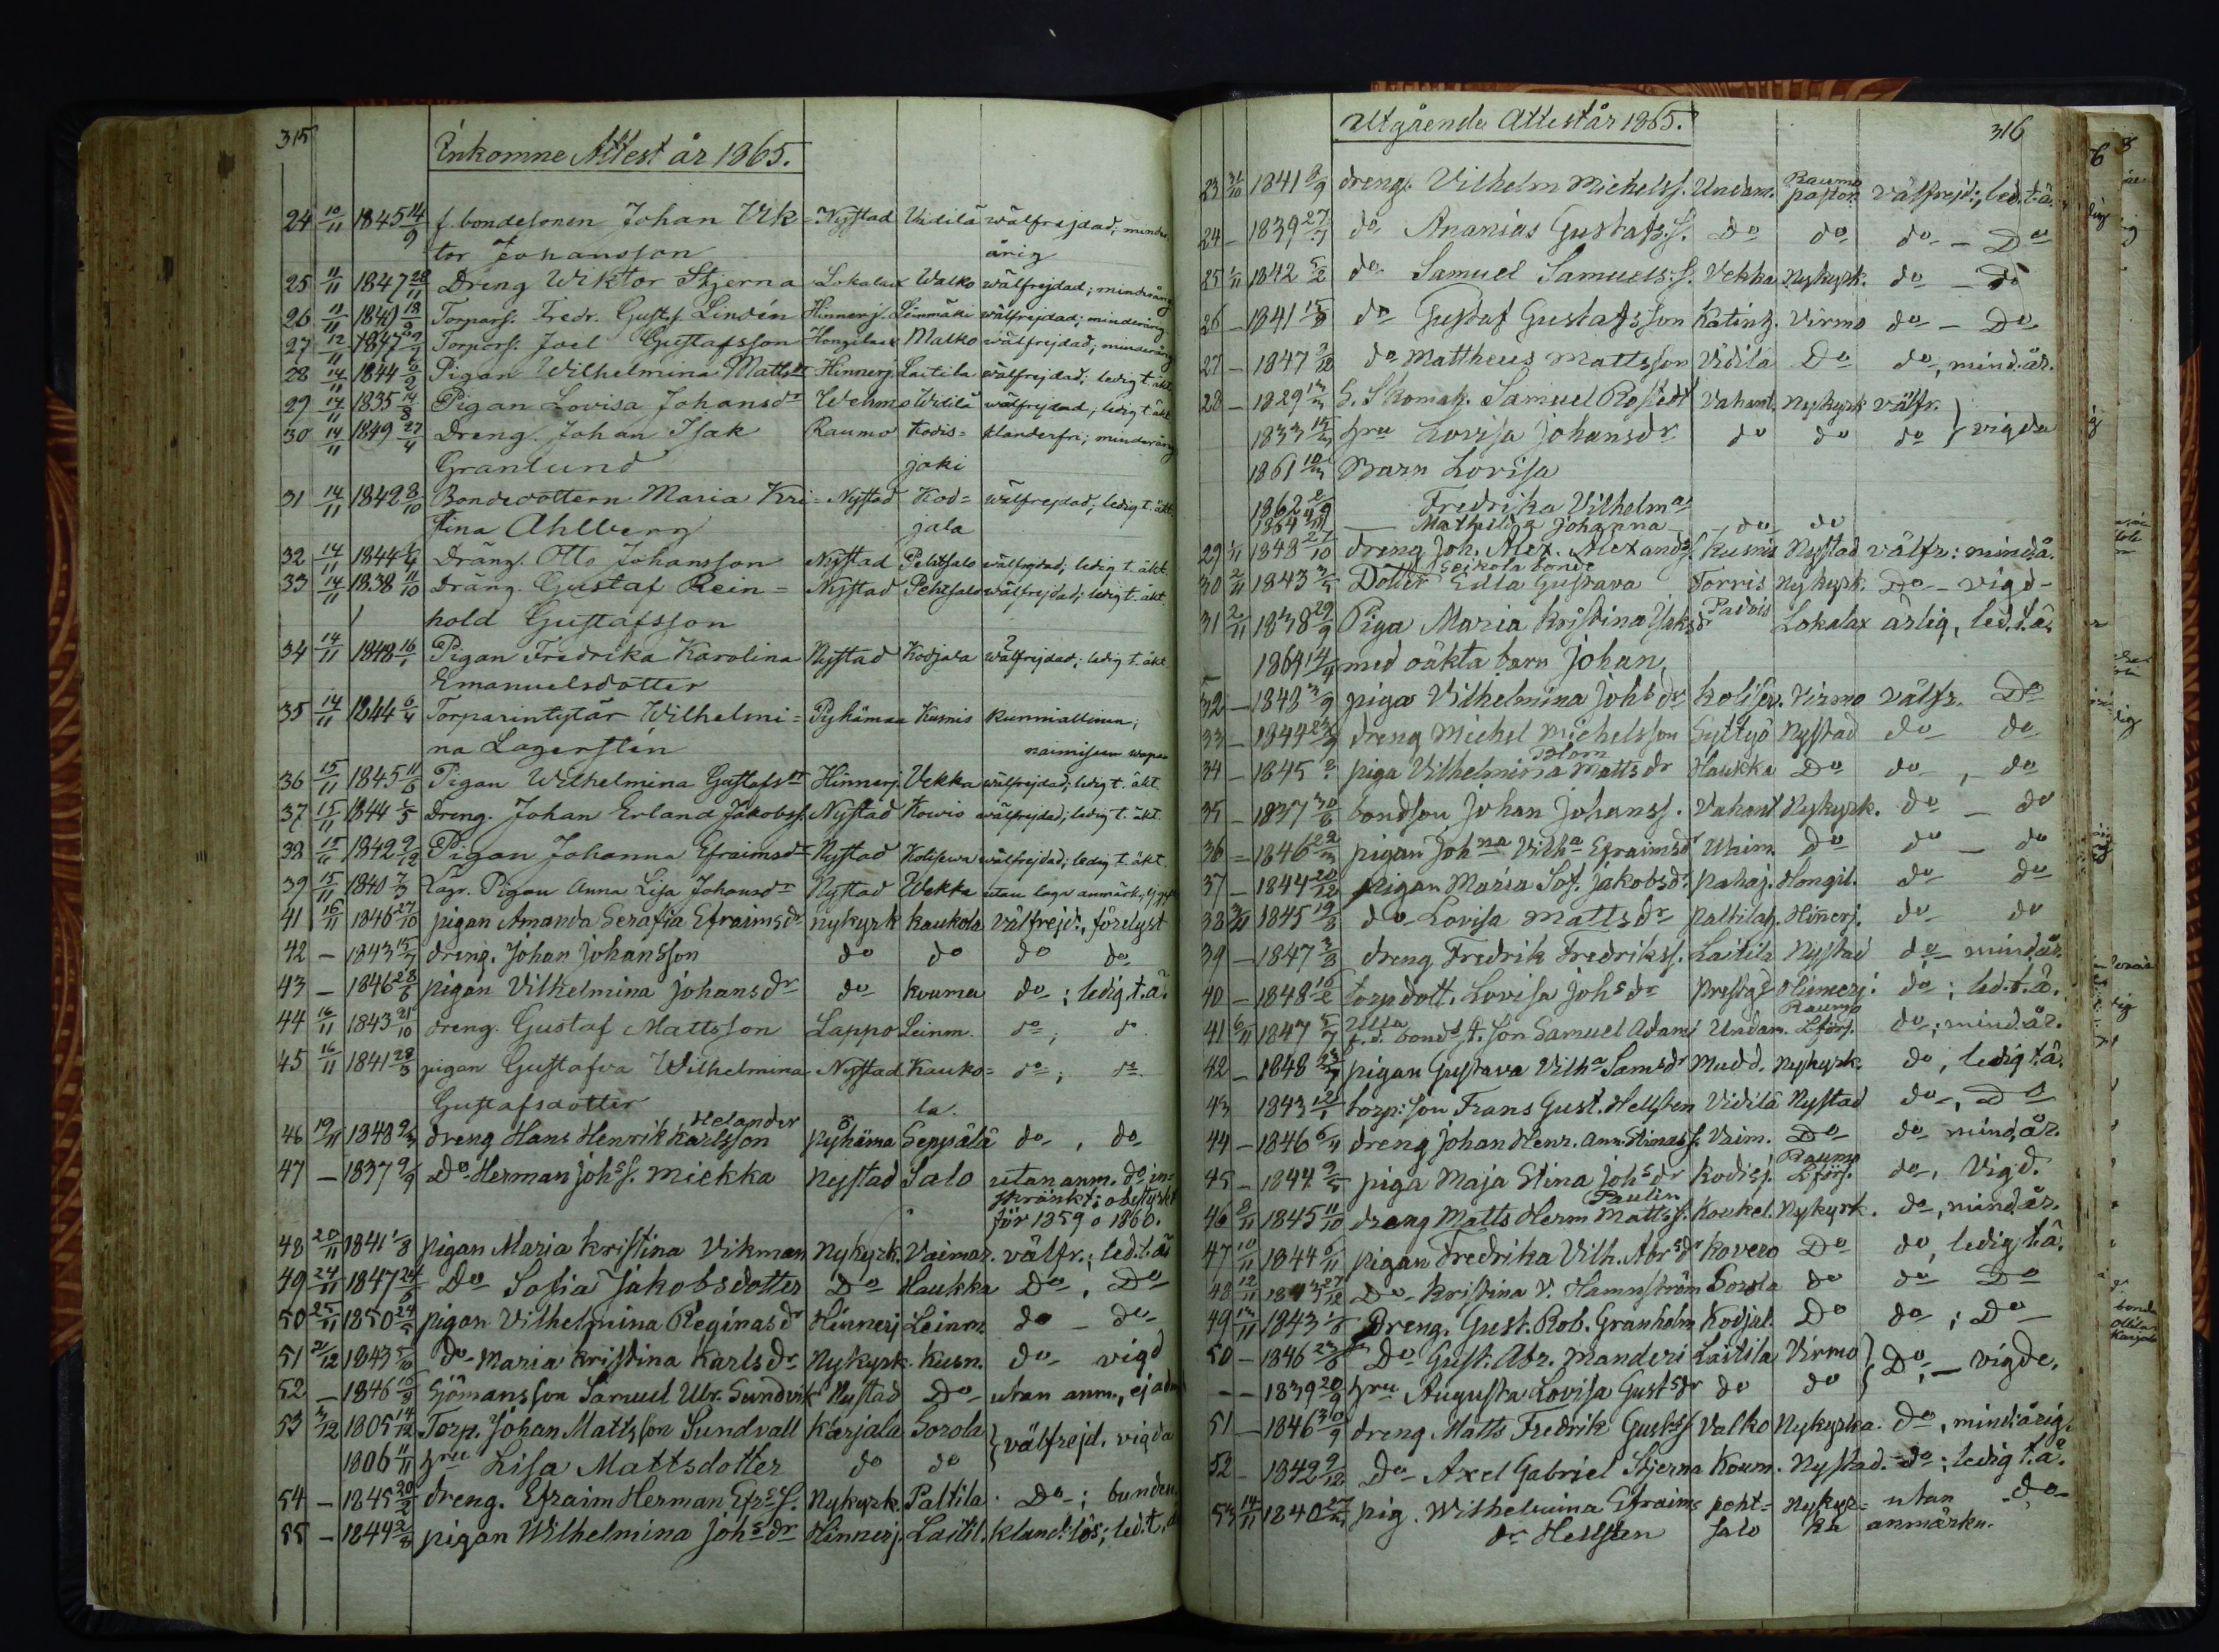 315
Inkomne Attest år 1865.
24 10/11 1845 14/9 f. bondesonen Johan Vik= Nystad Vidilä wälfrejdad; minder-
tor Johansson årig
25 11/11 1847 28/11 Dreng Wiktor Stjerna Lokalax Walko wälfrejdad; minderårig
26 11/11 1849 18/9 Torpars. Fredr. Gustf Lindén Hinnerj. Leinmäki wälfrejdad; minderårig
27 12/11 1847 Torpars. Joel Gustafsson Hongilax Malko wälfrejdad; minderårig
28 14/11 1844 6/2 Pigan Wilhelmina Mattsdr Hinnerj. Laitila wälfrejdad; ledig t. äkt.
29 14/11 1835 14/8 Pigan Lovisa Johansdr Wehmo Widilä wälfrejdad; ledig t. äkt
30 14/11 1849 27/4 Dreng. Johan Isak Raumo Kodis= klanderfri; minderårig
Granlund joki
31 14/11 1842 8/10 Bondedottern Maria Kri= Nystad Kod= wälfrejdad; ledig t. äkt.
stina Ahlberg jala
32 14/11 1844 Dräng. Otto Johansson Nystad Pehtsalo wälfrejdad; ledig t. äkt.
33 14/11 1838 11/10 Dräng. Gustaf Rein= Nystad Pehtsalo wälfrejdad; ledig t. äkt.
hold Gustafsson
34 14/11 1848 16/1 Pigan Fredrika Karolina Nystad Kodjala wälfrejdad; ledig t. äkt.
Emanuelsdotter
35 14/11 1844 6/4 Torparintytär Wilhelmi= Pyhämaa Kusnis kunniallinen;
na Lagerstén naimiseen wapaa
36 15/11 1845 11/6 Pigan Wilhelmina Gustafsdr Hinnerj. Vekka wälfrejdad; ledig t. äkt.
37 15/11 1844 1/5 Dreng. Johan Erland Jakobss. Nystad Kowio wälfrejdad; ledig t. äkt.
38 15/11 1842 9/12 Pigan Johanna Efraimsdr Nystad Kolisewa wälfrejdad; ledig t. äkt.
39 15/11 1840 7/3 Lagr. Pigan Anna Lisa Johansdr Nystad Wekka utan laga anmärk.
41 16/11 1846 27/10 pigan Amanda Serafia Efraimsdr nykyrk kaukola välfrejd:, förelyst
42 – 1843 15/7 dreng. Johan Johansson do do do do
43 – 1846 28/6 pigan Vilhelmina Johansdr do kouma do; ledig t. ä.
44 16/11 1843 21/10 dreng. Gustaf Mattsson Lappo Leinm. do; do
45 16/11 1841 28/3 pigan Gustafva Wilhelmina Nystad Kauko= do; do.
Gustafsdotter la.
Helander
46 19/11 1848 9/3 dreng Hans Henrik Karlsson pyhäma Seppälä do, do
47 – 1837 9/9 Do Herman Johs s. Miekka Nystad Salo utan anm. do in-
skränkt; obestyrkt
för 1859 o 1860.
48 20/11 1841 1/8 pigan Maria Kristina Vikman Nykyrk. Vaimar. välfr.; led. t. ä
49 24/11 1847 24/6 Do Sofia Jakobsdotter Do Haukka Do, Do
50 25/11 1850 24/5 pigan Vilhelmina Reginasdr Hinnerj Leinm. do – do
51 2/12 1843 5/10 do Maria Kristina Karlsdr Nykyrk. Kusn. do vigd
52 – 1846 Sjömansson Samuel Ulr. Sundvik Nystad Do utan anm., ej adm
53 3/12 1805 14/12 Torp. Johan Mattsson Sundvall Karjala Sorola } välfrejd. vigda
1806 11/11 hru Lisa Mattsdotter do do
54 – 1845 20/2 dreng. Efraim Herman Efrs S. Nykyrk. Paltila Do; bunden
55 – 1844 2/8 pigan Wilhelmina Johsdr Hinnerj. Laitil. kland: lös; led. t. ä
Utgående Attest år 1865.
316
23 31/10 1841 8/9 dreng. Vilhelm Michelss. Undam. Raumo pastor. välfrejd:, led. t. ä.
24 – 1839 27/7 do Ananias Gustafs. S. Do do do – Do
25 1/11 1842 5/2 do Samuel Samuels. S. Vekka Nykyrk. do – Do
26 – 1841 15/8 do Gustaf Gustafsson Katinh. Virmo do – Do
27 – 1847 2/12 do Mattheus Mattsson Vidilä Do do, mind. år.
28 – 1829 13/3 S. Skomak. Samuel Rostedt Vahant. Nykyrk välfr. } vigda
1833 hru Lovisa Johansdr do do do
1861 10/3 Barn Lovisa
1862 Fredrika Vilhelma
1864 – Mathilda Johanna – do do
29 1/11 1848 27/10 dreng Joh. Alex. Alexands S. Kusnis Nystad välfr: mind. å.
Seikola bonde
30 2/11 1843 3/5 Dotter Edla Gustava Torris Nykyrk. Do – vigd –
31 2/11 1838 29/9 Piga Maria Kristina Isaksdr Padois Lokalax ärlig, led. t. ä.
1864 14/4 med oäkta barn Johan,
32 – 1848 3/9 piga Vilhelmina Johsdr Kolisev. Virmo välfr. Do
33 – 1844 dreng Michel Michelsson Syttyö Nystad do do
Blom
34 – 1845 piga Vilhelmina Mattsdr Haukka Do do, – do
35 – 1837 30/8 bondson Johan Johanss. Vahant Nykyrk. do – do
36 – 1846 22/3 pigan Johna Vilha Efraimsdr Uhim. Do do – do
37 – 1844 20/12 pigan Maria Sof. Jakobsdr Pahaj. Hongil. do do
38 3/11 1845 19/8 do Lovisa Mattsdr Paltilah. Hinerj. do do
39 – 1847 3/8 dreng Fredrik Fredrikss. Laitila Nystad do – mind. år.
40 – 1848 15/2 torpdott. Lovisa Johsdr Prestgd Hinnerj. do; led. t. ä.
41 6/11 1847 5/7 f. d. bonds t. son Samuel Adami Undam. Raumo Lförs. do; mind. år.
42 – 1848 pigan Gustava Vilha Samsdr Mudd. Nykyrk. do, ledig t. ä.
43 1843 12/1 torp: son Frans Gust. Hellsten Vidilä Nystad do, Do
44 – 1846 6/4 dreng Johan Henr. Ann. Stinas S. Vaim. Do do mind. år.
45 – 1844 9/5 piga Maja Stina Johsdr Kodisj. Raumo Lförs. do, Vigd.
Paulin
46 8/11 1845 11/10 dreng Matts Herm Mattss. Koukel. Nykyrk. do, mind. år.
47 10/11 1844 5/11 pigan Fredrika Vilh. Abrsdr Kovero Do do, ledig t. ä.
48 12/11 1843 27/12 Do Kristina V. Hamnström Sorola do do Do
49 13/11 1843 1/8 Dreng. Gust. Rob. Granholm Kodjal. Do do; Do
50 – 1846 Do Gust. Abr. Manderi Laitila Virmo } Do, – vigde.
– – 1839 20/9 hru Augusta Lovisa Gustsdr do do
51 – 1846 30/9 dreng Matts Fredrik Gusts S. Valko Nykyrka. do, mind: årig.
52 – 1842 9/12 Do Axel Gabriel Stjerna Koum. Nystad. do; ledig t. ä.
53 14/11 1840 pig. Wilhelmina Efraims peht= Nykyr= utan – do –
dr Hellsten salo ka anmärkn.